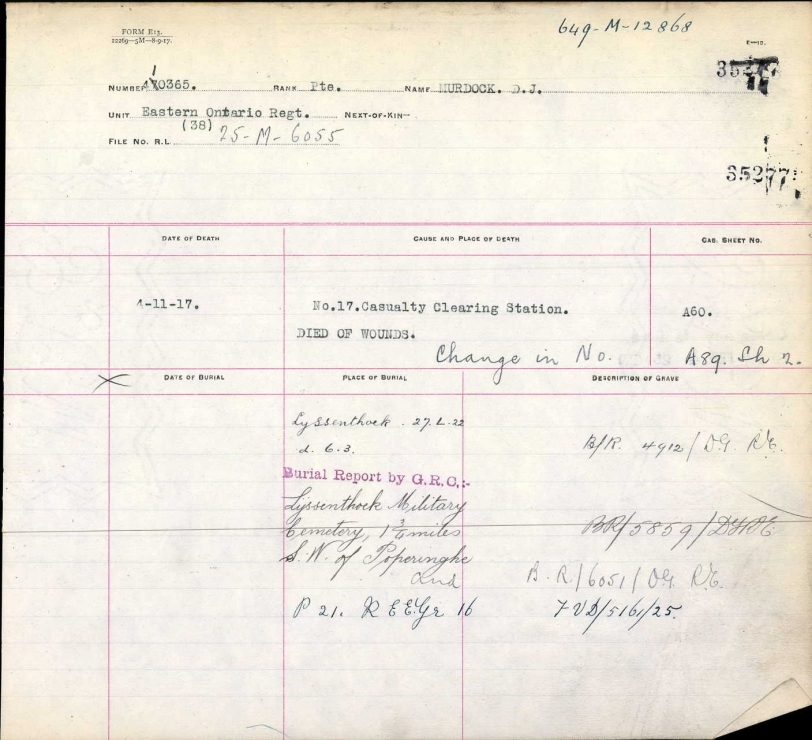 FORM E13.
12269—5M—8-9-17.
649-M-12868
E—13.
NUMBER 410365. RANK Pte. NAME MURDOCK. D.J.
UNIT Eastern Ontario Regt. NEXT-OF-KIN—
(38)
FILE NO. R.L. 25-M-6055
DATE OF DEATH CAUSE AND PLACE OF DEATH CAS. SHEET NO.
4-11-17. No.17.Casualty Clearing Station. A60.
DIED OF WOUNDS.
Change in No. A89. Sh 2.
DATE OF BURIAL PLACE OF BURIAL DESCRIPTION OF GRAVE
Lyssenthoek . 27.L.22
d. 6.3. B/R. 4912/
Burial Report by G.R.C.:-
Lijssenthoek Military
Cemetery, 1 3/4 miles BR/5859/
S. W. of Poperinghe
B. R./6051/
P 21. R E E. Gr 16 7VD/5161/25.